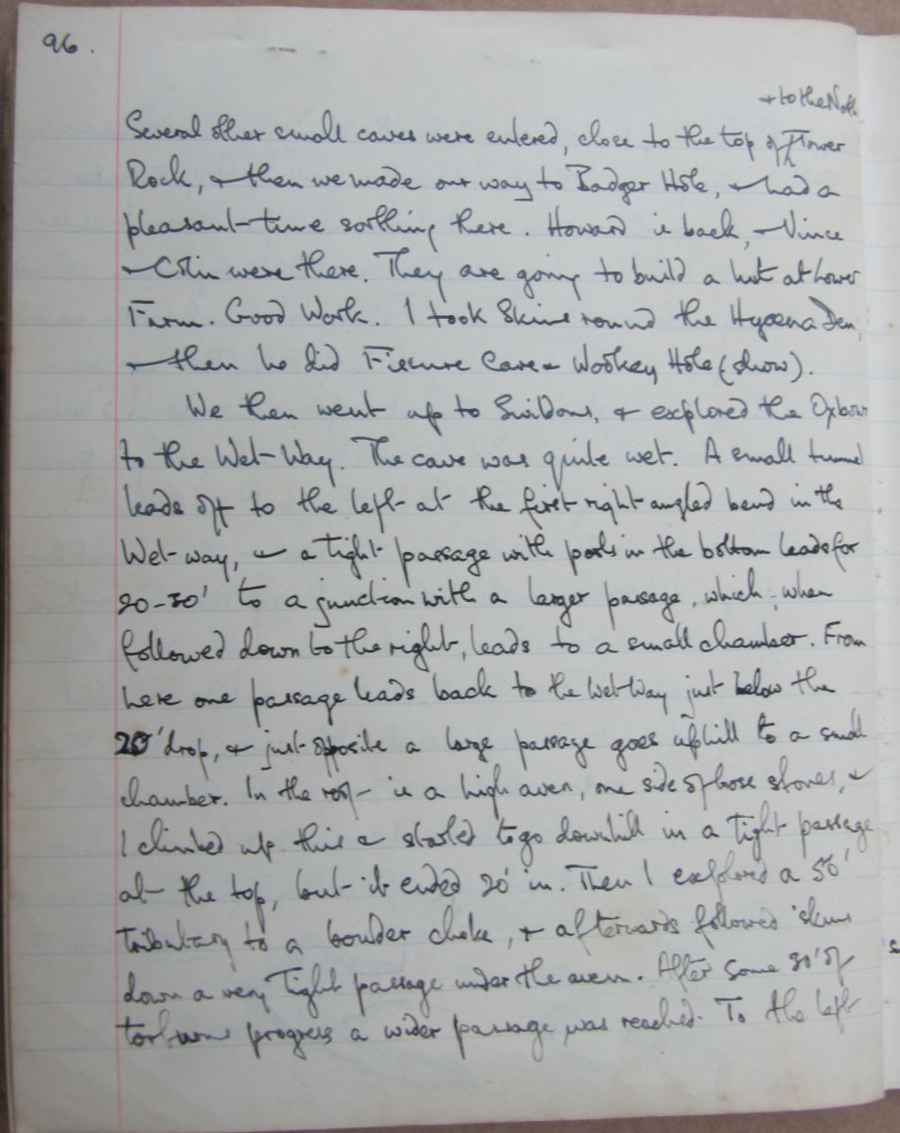 96.
+ to the North
Several other small caves were entered, close to the top of Tower
Rock, + then we made our way to Badger Hole, + had a
pleasant time sorting there. Howard is back, + Vince
+ Colin were there. They are going to build a hut at Lower
Farm. Good Work. I took Skins round the Hyaena Den,
+ then he did Fissure Cave + Wookey Hole (show).
We then went up to Swildons, + explored the Oxbow
to the Wet-Way. The cave was quite wet. A small tunnel
leads off to the left at the first right angled bend in the
Wet-way, + a tight passage with pools in the bottom leads for
20-30' to a junction with a larger passage, which, when
followed down to the right, leads to a small chamber. From
here one passage leads back to the Wet Way just below the
20' drop, + just opposite a large passage goes uphill to a small
chamber. In the roof is a high aven, one side of loose stones, +
I climbed up this + started to go downhill in a tight passage
at the top, but it ended 20' in. Then I explored a 50'
tributary to a boulder choke, + afterwards followed Skins
down a very tight passage under the aven. After some 30' of
tortuous progress a wider passage was reached. To the left